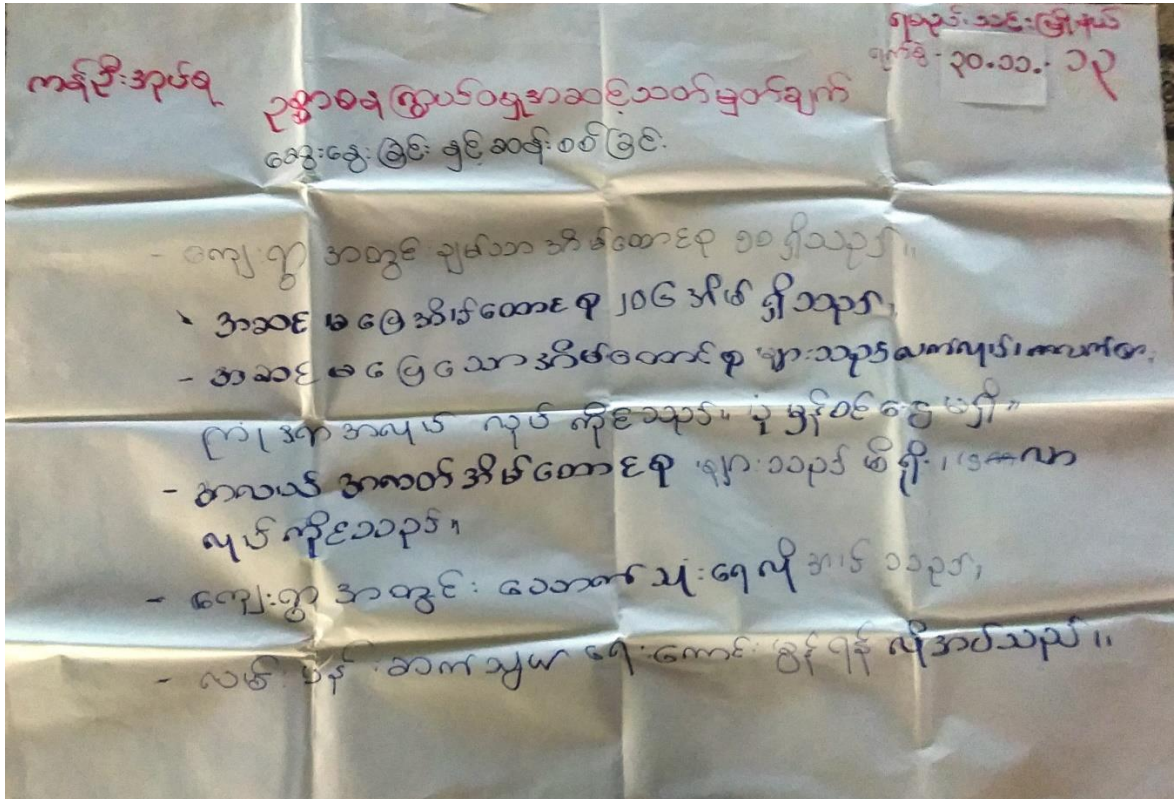 ရမည်းသင်းမြို့နယ်
ရက်စွဲ - ၃၀.၁၁.၁၃
ကန်ဦးအုပ်စု
ဥစ္စာဓန ကြွယ်ဝမှုအဆင့်သတ်မှတ်ချက်
ဆွေးနွေးခြင်း နှင့် ဆန်းစစ်ခြင်း
- ကျေးရွာ အတွင် ချမ်းသာ အိမ်ထောင်စု ၁၀ ရှိသည်။
- အဆင် မပြေ အိမ်ထောင်စု ၂၀၆ အိမ် ရှိသည်။
- အဆင် မပြေသော အိမ်ထောင်စု များသည် လက်လုပ်၊
ကြုံရာ အလုပ် လုပ် ကိုင်သည်။ ပုံမှန်ဝင်ငွေ မရှိ။
- အလယ် အလတ် အိမ်ထောင်စု များသည်
လုပ် ကိုင်သည်။
- ကျေးရွာ အတွင်း သောက် သုံးရေ လို အပ် သည်။
- လမ်းပန်း ဆက်သွယ် ရေး ကောင်း မွန် ရန် လိုအပ်သည်။